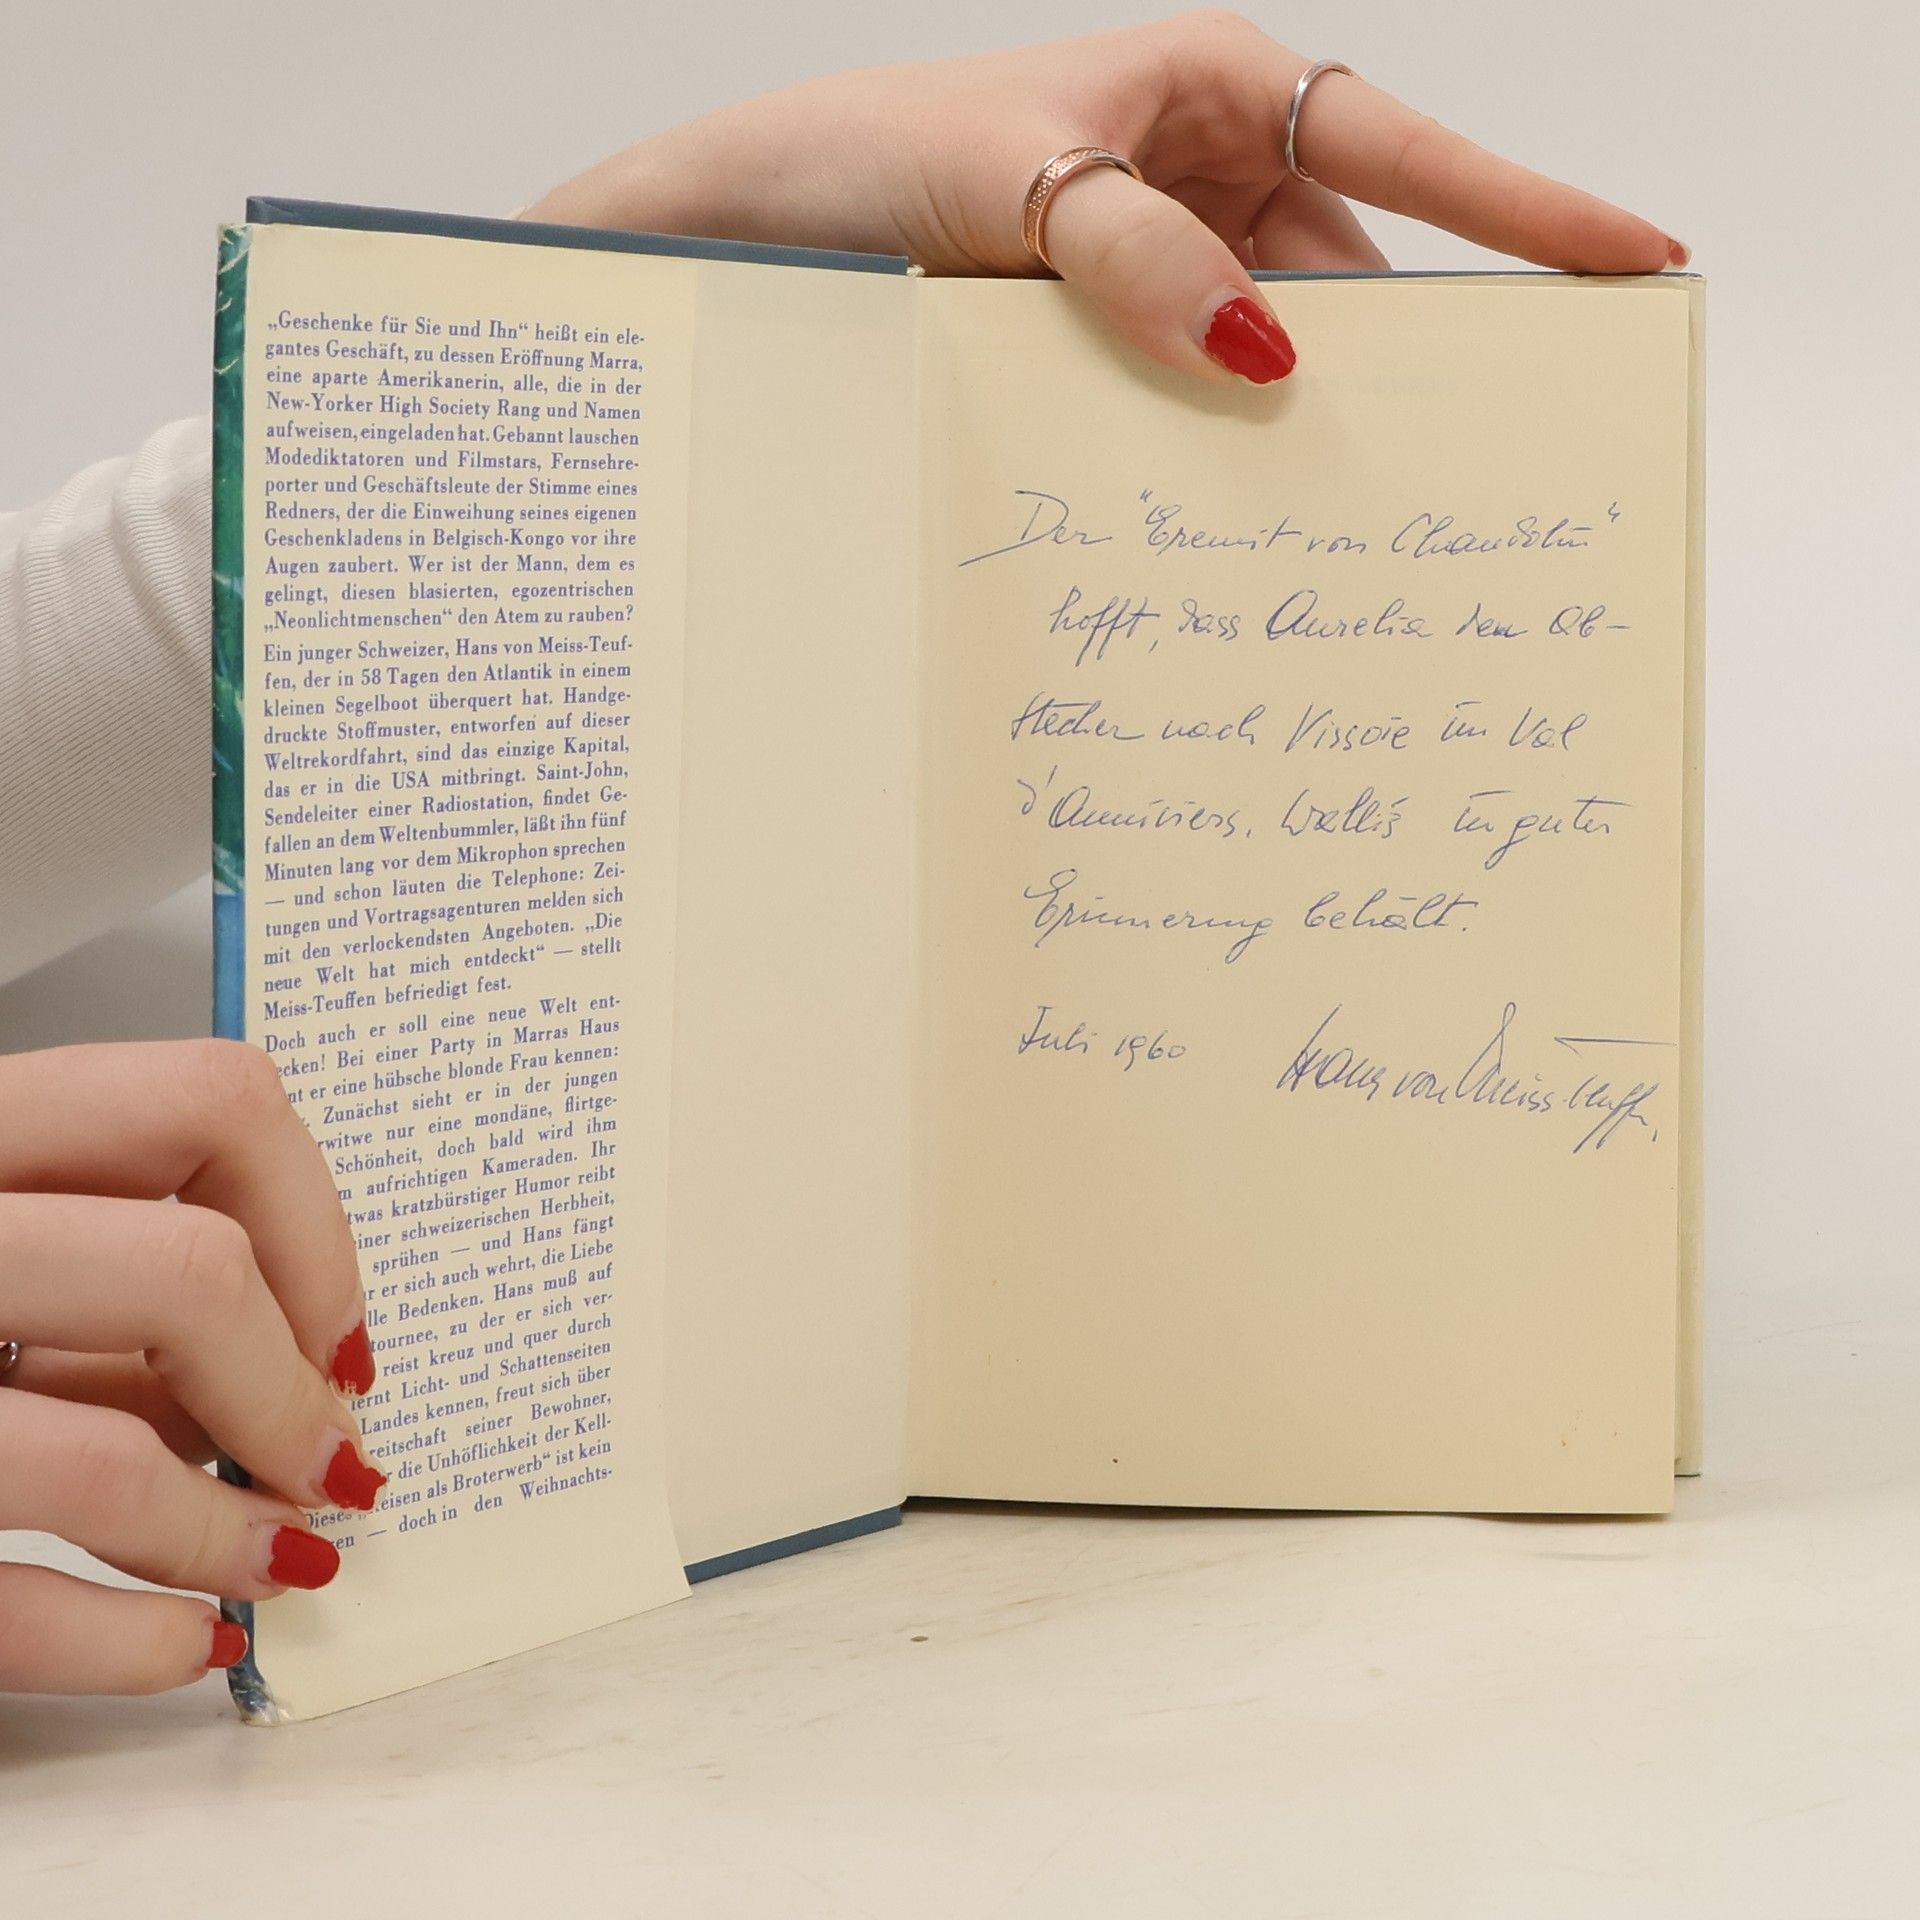 „Geschenke für Sie und Ihn“ heißt ein ele-
gantes Geschäft, zu dessen Eröffnung Marra,
eine aparte Amerikanerin, alle, die in der
New-Yorker High Society Rang und Namen
aufweisen, eingeladen hat. Gebannt lauschen
Modediktatoren und Filmstars, Fernsehre-
porter und Geschäftsleute der Stimme eines
Redners, der die Einweihung seines eigenen
Geschenkladens in Belgisch-Kongo vor ihre
Augen zaubert. Wer ist der Mann, dem es
gelingt, diesen blasierten, egozentrischen
„Neonlichtmenschen“ den Atem zu rauben?
Ein junger Schweizer, Hans von Meiss-Teuf-
fen, der in 58 Tagen den Atlantik in einem
kleinen Segelboot überquert hat. Handge-
druckte Stoffmuster, entworfen auf dieser
Weltrekordfahrt, sind das einzige Kapital,
das er in die USA mitbringt. Saint-John,
Sendeleiter einer Radiostation, findet Ge-
fallen an dem Weltenbummler, läßt ihn fünf
Minuten lang vor dem Mikrophon sprechen
— und schon läuten die Telephone: Zei-
tungen und Vortragsagenturen melden sich
mit den verlockendsten Angeboten. „Die
neue Welt hat mich entdeckt“ — stellt
Meiss-Teuffen befriedigt fest.
Doch auch er soll eine neue Welt ent-
ecken! Bei einer Party in Marras Haus
nt er eine hübsche blonde Frau kennen:
Zunächst sieht er in der jungen
rwitwe nur eine mondäne, flirtge-
Schönheit, doch bald wird ihm
m aufrichtigen Kameraden. Ihr
twas kratzbürstiger Humor reibt
einer schweizerischen Herbheit,
sprühen — und Hans fängt
r er sich auch wehrt, die Liebe
lle Bedenken. Hans muß auf
tournee, zu der er sich ver-
reist kreuz und quer durch
lernt Licht- und Schattenseiten
Landes kennen, freut sich über
reitschaft seiner Bewohner,
r die Unhöflichkeit der Kell-
eisen als Broterwerb“ ist kein
Dieses — doch in den Weihnachts-
en
Der "Eremit von Chandolin"
hofft, dass Aurelia den Ab-
stecher nach Vissoie im Val
d'Anniviers, Wallis in guter
Erinnerung behält.
Juli 1960
Hans von Meiss-Teuffen